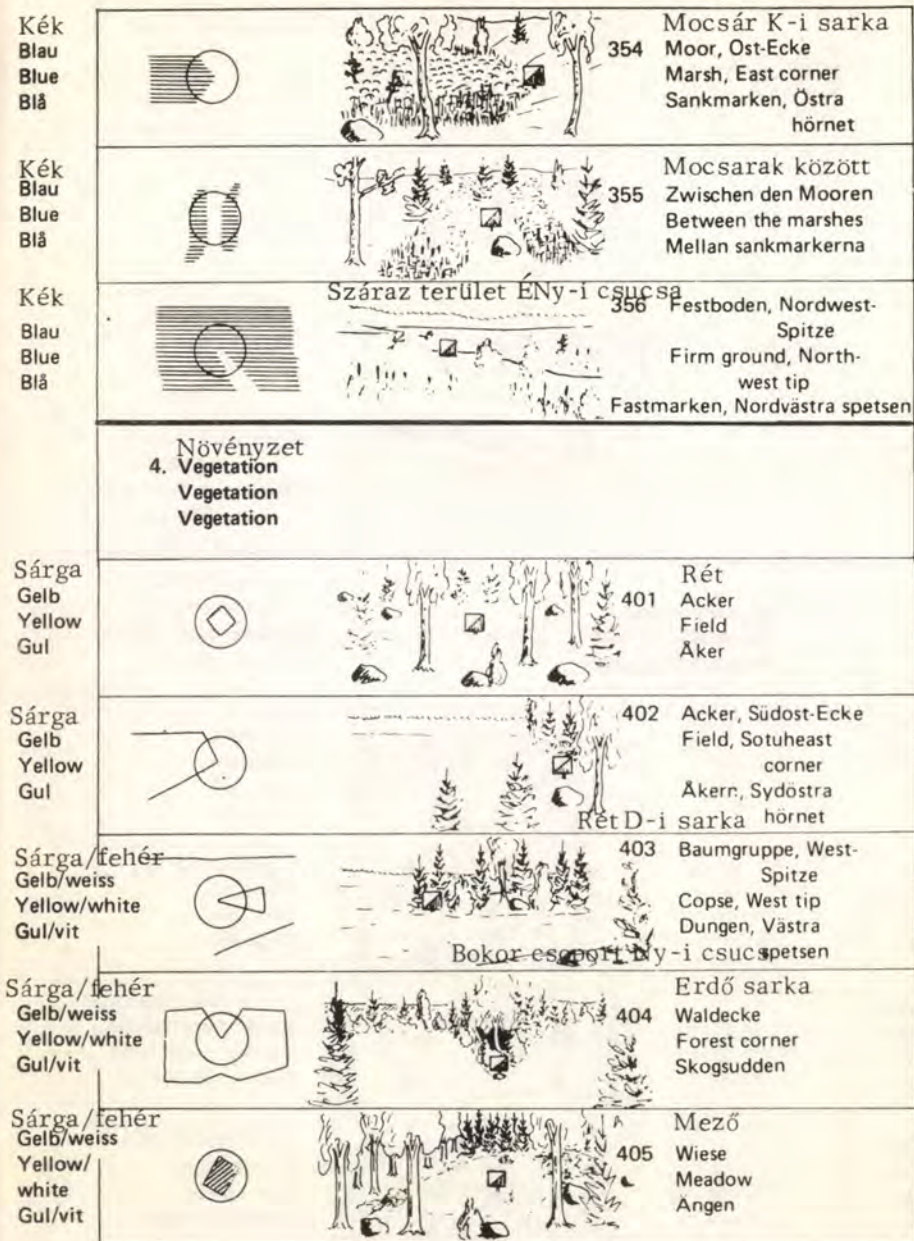 Kék
Blau
Blue
Blå
354
Mocsár K-i sarka
Moor, Ost-Ecke
Marsh, East corner
Sankmarken, Östra
hörnet
Kék
Blau
Blue
Blå
355
Mocsarak között
Zwischen den Mooren
Between the marshes
Mellan sankmarkerna
Kék
Blau
Blue
Blå
Száraz terület ÉNy-i csucsa
356
Festboden, Nordwest-
Spitze
Firm ground, North-
west tip
Fastmarken, Nordvästra spetsen
Növényzet
4. Vegetation
Vegetation
Vegetation
Sárga
Gelb
Yellow
Gul
401
Rét
Acker
Field
Åker
Sárga
Gelb
Yellow
Gul
402
Acker, Südost-Ecke
Field, Sotuheast
corner
Åkern, Sydöstra
hörnet
Rét D-i sarka
Sárga/fehér
Gelb/weiss
Yellow/white
Gul/vit
403
Baumgruppe, West-
Spitze
Copse, West tip
Dungen, Västra
spetsen
Bokor csoport Ny-i csucsa
Sárga/fehér
Gelb/weiss
Yellow/white
Gul/vit
404
Erdő sarka
Waldecke
Forest corner
Skogsudden
Sárga/fehér
Gelb/weiss
Yellow/
white
Gul/vit
405
Mező
Wiese
Meadow
Ängen